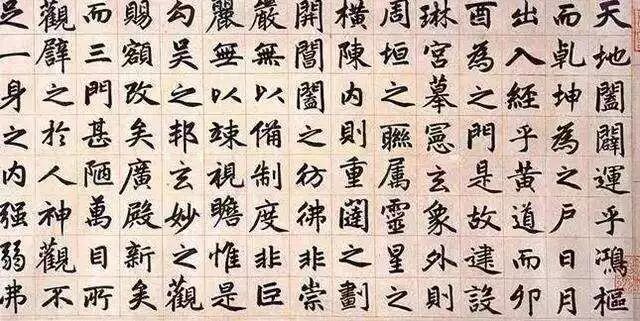 天地闔闢運乎鴻樞
而乹坤為之戶日月
出入經乎黃道而卯
酉為之門是故建設
琳宮摹憲玄象外則
周垣之聯属靈星之
橫陳内則重闥之劃
開閶闔之彷彿非崇
嚴無以備制度非巨
麗無以竦視瞻惟是
勾吳之邦玄妙之觀
賜額改矣廣殿新矣
而三門甚陋萬目所
觀譬之於人神觀不
足一身之内强弱弗